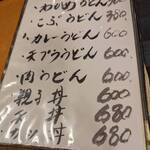 ・わかめうどん 580
・こぶうどん 580
・カレーうどん 600
・天プラうどん 600
・肉うどん 600
親子丼 600
天丼 680
カツ丼 680